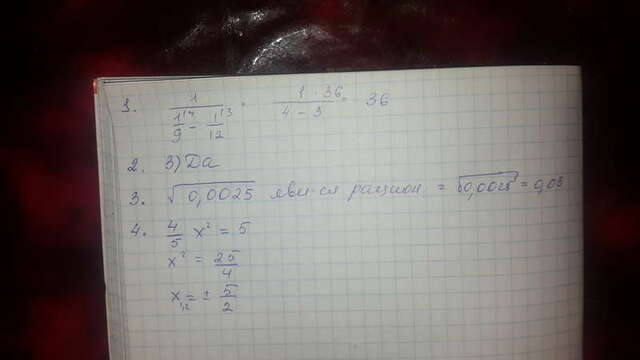 1. 1/(1^{1 4}/9 - 1^{1 3}/12) = (1 · 36)/(4 - 3) = 36
2. 3) Да
3. √0,0025 яви-ся рацион. = √0,0025 = 0,05
4. 4/5 x² = 5
x² = 25/4
x₁,₂ = ± 5/2